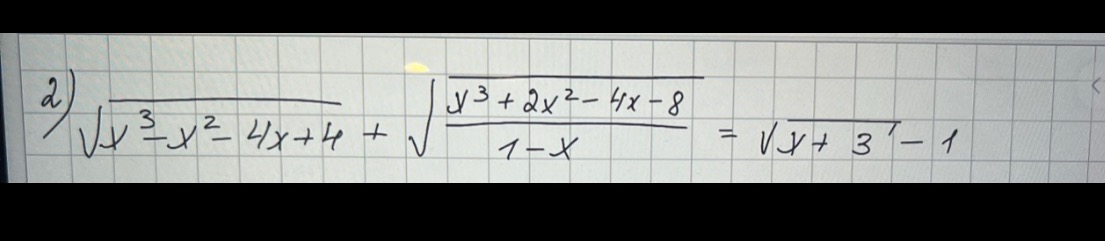 2) √(x³ - x² - 4x + 4) + √((x³ + 2x² - 4x - 8)/(1 - x)) = √(x + 3) - 1